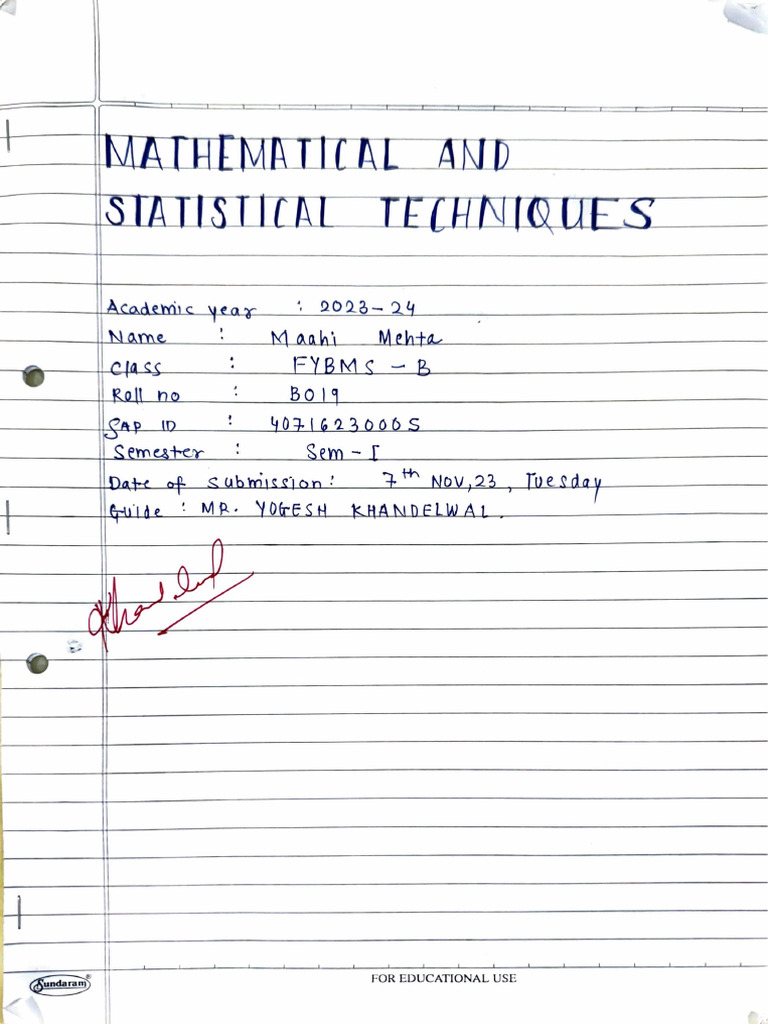 MATHEMATICAL AND
STATISTICAL TECHNIQUES
Academic year : 2023-24
Name : Maahi Mehta
Class : FYBMS - B
Roll no : B019
SAP ID : 40716230005
Semester : Sem - I
Date of submission : 7th NOV, 23, Tuesday
Guide : MR. YOGESH KHANDELWAL.
Sundaram®
FOR EDUCATIONAL USE